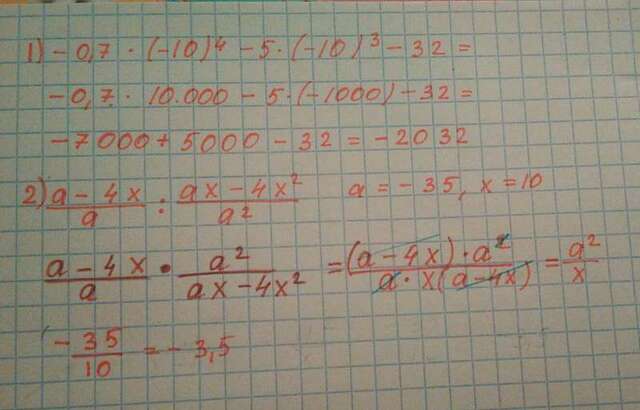 1) - 0,7 · (-10)⁴ - 5 · (-10)³ - 32 =
- 0,7 · 10.000 - 5 · (-1000) - 32 =
- 7000 + 5000 - 32 = - 2032
2) (a - 4x)/a : (ax - 4x²)/a² a = - 35, x = 10
(a - 4x)/a · a²/(ax - 4x²) = ((a - 4x) · a²)/(a · x(a - 4x)) = a²/x
- 35/10 = - 3,5